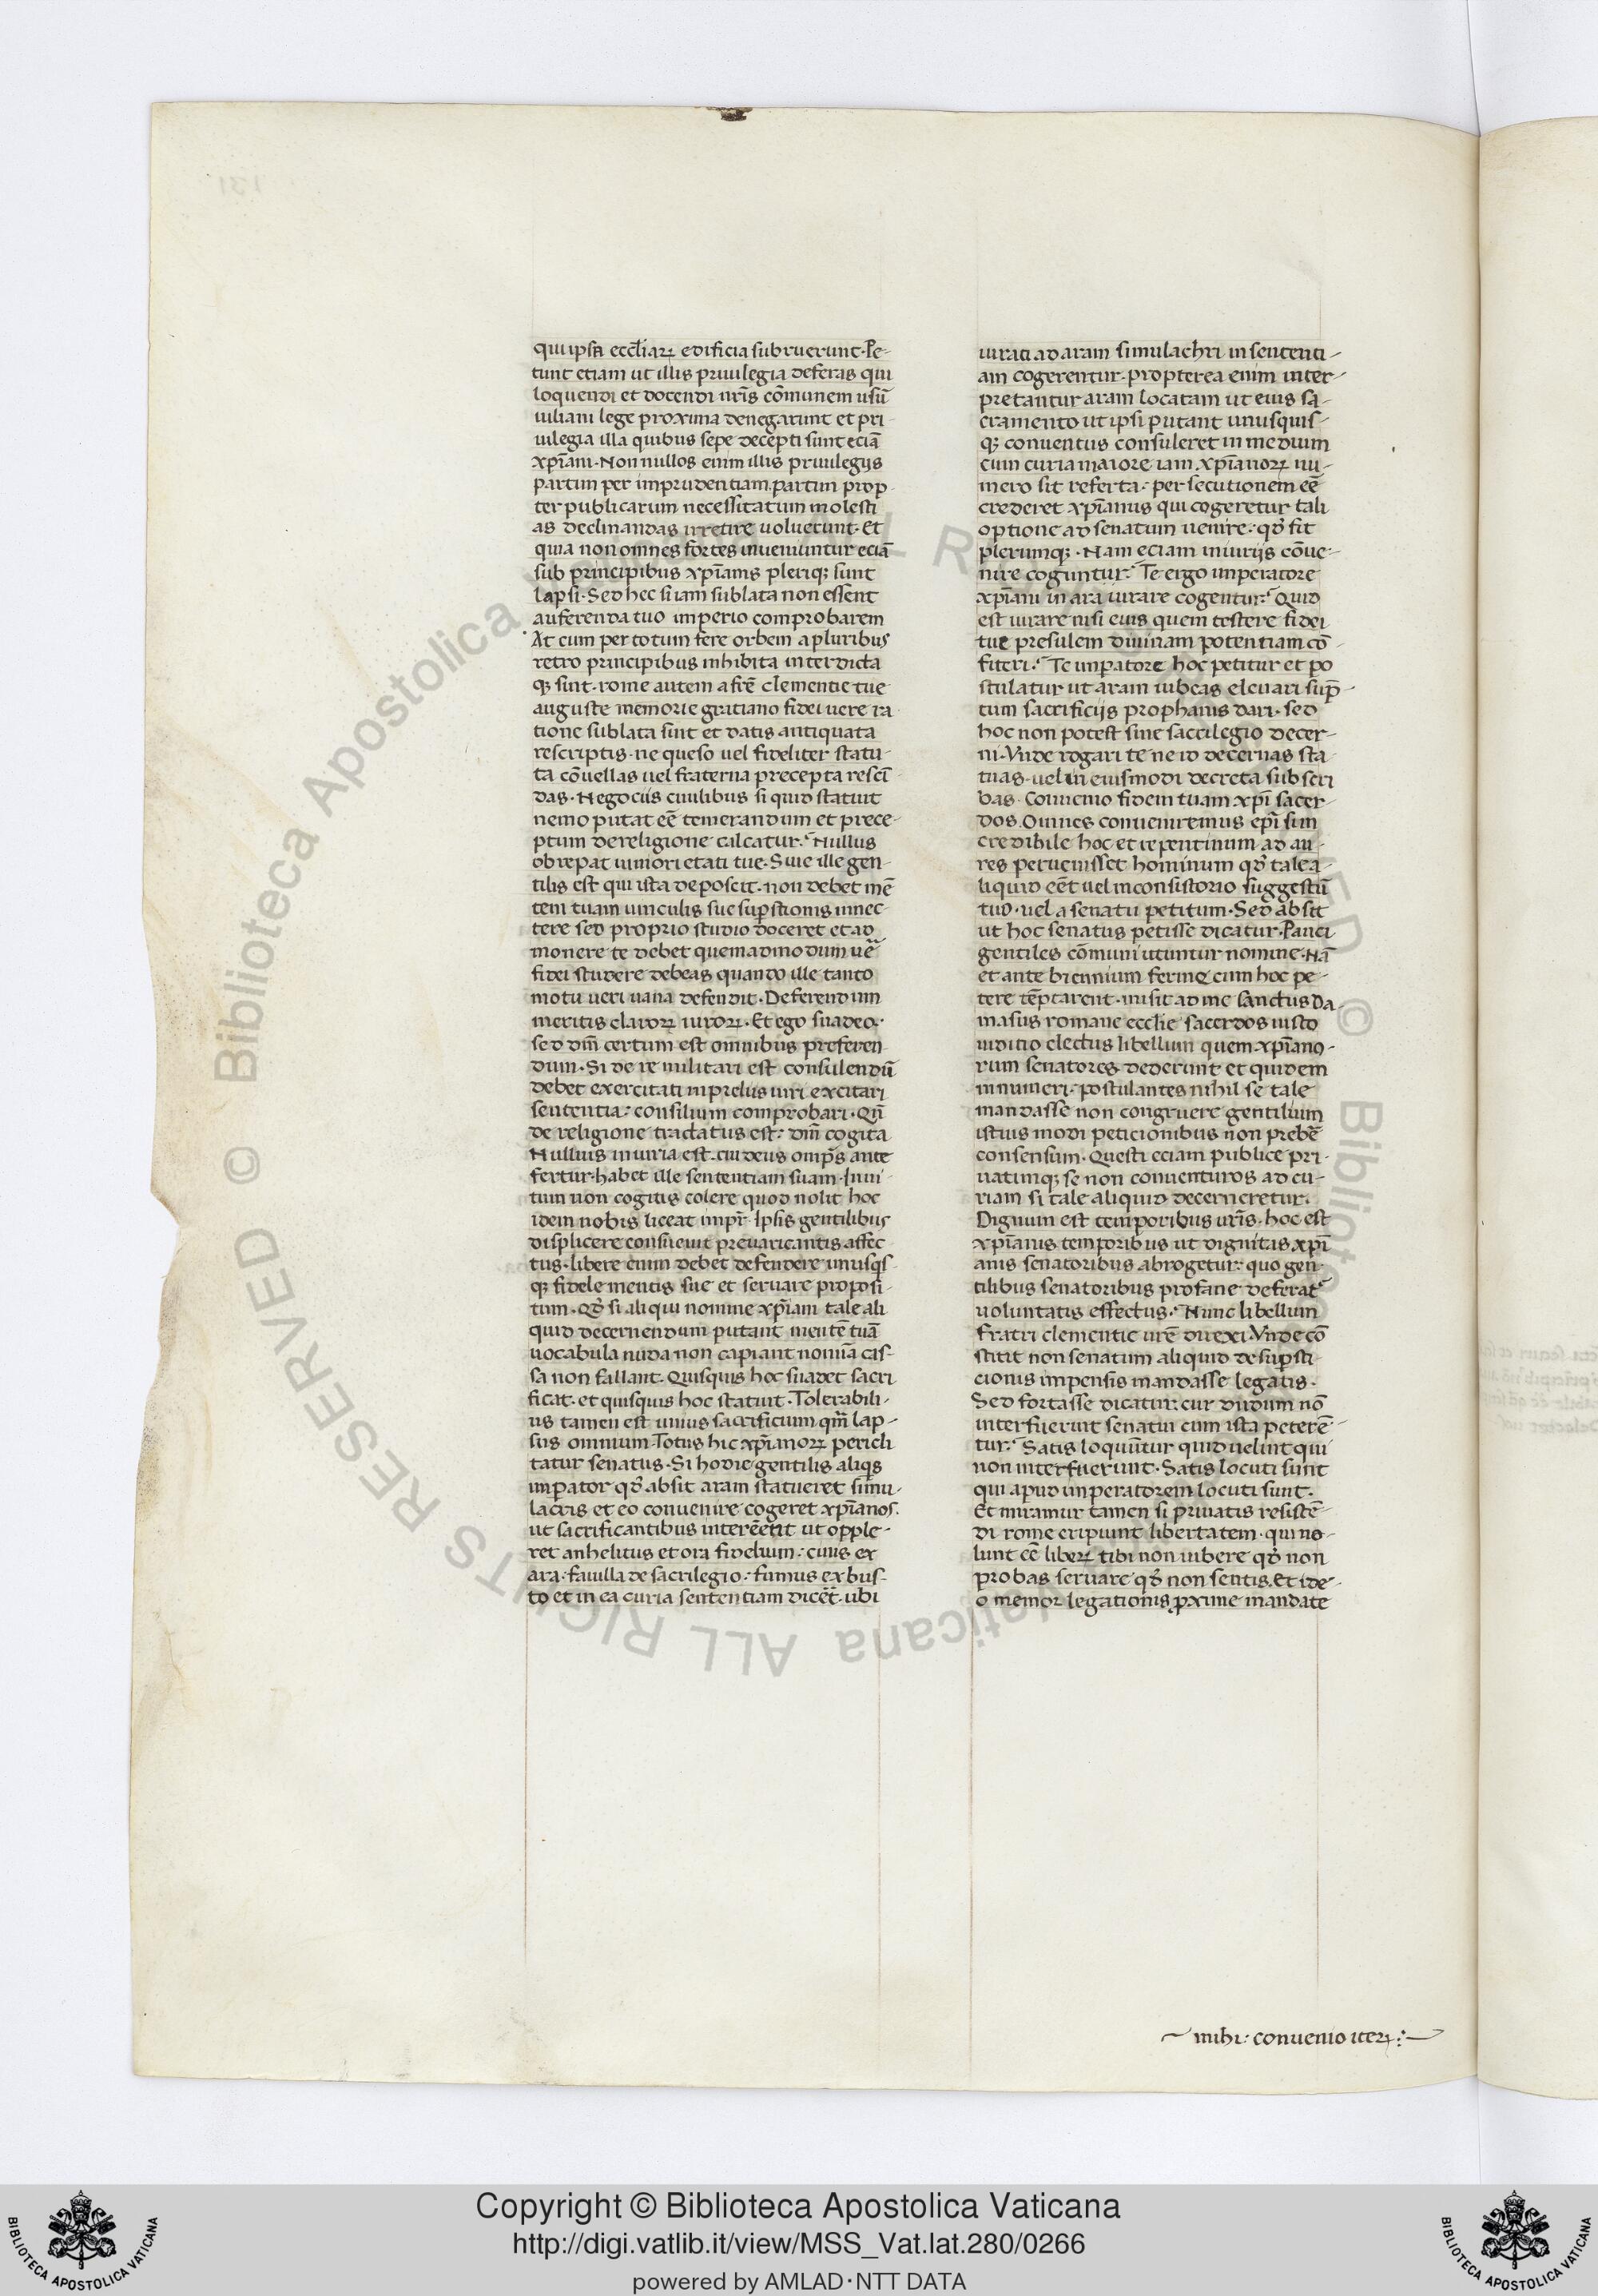 qui ipsa eccl̄iaꝝ edificia subruerunt · Pe-
tunt etiam ut illis priuilegia deferas qui
loquendi et docendi nr̄is cōmunem usū
iuliani lege proxima denegarunt et pri-
uilegia illa quibus sepe decepti sunt eciā
xp̄iani · Non nullos enim illis priuilegijs
partim per imprudentiam partim prop-
ter publicarum necessitatum molesti
as declinandas irretire uoluerunt · Et
quia non omnes fortes inueniuntur eciā
sub principibus xp̄ianis pleriqꝫ sunt
lapsi · Sed hec si iam sublata non essent
auferenda tuo imperio comprobarem
At cum per totum fere orbem a pluribus
retro principibus inhibita interdicta
qꝫ sint · rome autem a fr̄e clementie tue
auguste memorie gratiano fidei uere ra
tione sublata sint et datis antiquata
rescriptis · ne queso uel fideliter statu-
ta cōuellas uel fraterna precepta rescī-
das · Negociis ciuilibus si quid statuit
nemo putat eē temerandum et prece-
ptum de religione calcatur : Nullus
obrepat iuniori etati tue · Siue ille gen-
tilis est qui ista deposcit · non debet mē
tem tuam uinculis sue suꝑstionis innec-
tere sed proprio studio doceret et ad
monere te debet quemadmodum ue᷑
fidei studere debeas quando ille tanto
motu ueri uana defendit · Deferendum
meritis claroꝝ uiroꝝ · Et ego suadeo ·
sed dm̄ certum est omnibus preferen
dum · Si de re militari est consulendū
debet exercitati in prelus uiri excitari
sententia : consilium comprobari · Qn̄
de religione tractatus est : dm̄ cogita
Nullius iniuria est · cui deus omp̄s ante
fertur · habet ille sententiam suam · Inui-
tum non cogitis colere quod nolit hoc
idem nobis liceat imp̄r · Ipsis gentilibus
displicere consueuit preuaricantis affec
tus · libere enim debet defendere unusqͥs-
qꝫ fidele mentis sue et seruare proposi-
tum · Qd̓ si aliqui nomine xp̄iani tale ali
quid decernendum putant mentē tuā
uocabula nuda non capiant nomīa cas-
sa non fallant · Quisquis hoc suadet sacri
ficat · et quisquis hoc statuit · Tolerabili-
us tamen est unius sacrificium qm̄ lap-
sus omnium · Totus hic xp̄ianoꝝ pericli
tatur senatus · Si hodie gentilis aliqͥs
imꝑator qd̓ absit aram statueret simu-
lacris et eo conuenire cogeret xp̄ianos ·
ut sacrificantibus interēēt it ut opple-
ret anhelitus et ora fidelium : cinis ex
ara : fauilla de sacrilegio : fumus ex bus-
to et in ea curia sententiam dicēt · ubi
iurati ad aram simulachri in sententi-
am cogerentur · propterea enim inter-
pretantur aram locatam ut eius sa-
cramento ut ipsi putant unusquis-
qꝫ conuentus consuleret in medium
cum curia maiore iam xp̄ianoꝝ nu-
mero sit referta : persecutionem eē
crederet xp̄ianus qui cogeretur tali
optione ad senatum uenire : qd̓ fit
plerumqꝫ · Nam eciam iniurijs cōue-
nire coguntur : Te ergo imperatore
xp̄iani in ara iurare cogentur : Quid
est iurare nisi eius quem testere fidei
tue presulem diuinam potentiam cō
fiteri : Te imꝑatore hoc petitur et po
stulatur ut aram iubeas eleuari sup̄-
tum sacrificijs prophanis dari · sed
hoc non potest sine sacrilegio decer-
ni · Vnde rogari te ne id decernas sta
tuas · uel in eiusmodi decreta subscri
bas · Conuenio fidem tuam xp̄i sacer-
dos · Omnes conueniremus ep̄i sin
credibile hoc et repentinum ad au-
res peruenisset hominum qd̓ tale a-
liquid eēt uel in consistorio suggestū
tuo · uel a senatu petitum · Sed absit
ut hoc senatus petisse dicatur · Pauci
gentiles cōmuni utuntur nomine · Nā
et ante biennium ferme cum hoc pe-
tere tēptarent · misit ad me sanctus Da-
masus romane ecclie sacerdos iusto
iuditio electus libellum quem xp̄iano-
rum senatores dederunt et quidem
innumeri : postulantes nihil se tale
mandasse non congruere gentilium
istius modi peticionibus non prebē
consensum · Questi eciam publice pri-
uatimqꝫ se non conuenturos ad cu-
riam si tale aliquid decerneretur ·
Dignum est temporibus ur̄is · hoc est
xp̄ianis temporibus ut dignitas xp̄i
anis senatoribus abrogetur : quo gen-
tilibus senatoribus profane deferat᷑
uoluntatis effectus : Nunc libellum
fratri clementie ur̄e direxi · Vnde cō
stitit non senatum aliquid de suꝑsti-
cionis impensis mandasse legatis ·
Sed fortasse dicatur : cur dudum nō
interfuerint senatui cum ista peterē-
tur : Satis loquūtur quid uelint qui
non interfuerunt · Satis locuti sunt
qui apud imperatorem locuti sunt ·
Et miramur tamen si priuatis resistē-
di rome eripiunt libertatem · qui no-
lunt eē libeꝝ tibi non iubere qd̓ non
probas seruare qd̓ non sentis · Et ide-
o memor legationis ꝓxime mandate
mihi : conuenio iteꝝ :
Copyright © Biblioteca Apostolica Vaticana
http://digi.vatlib.it/view/MSS_Vat.lat.280/0266
powered by AMLAD·NTT DATA